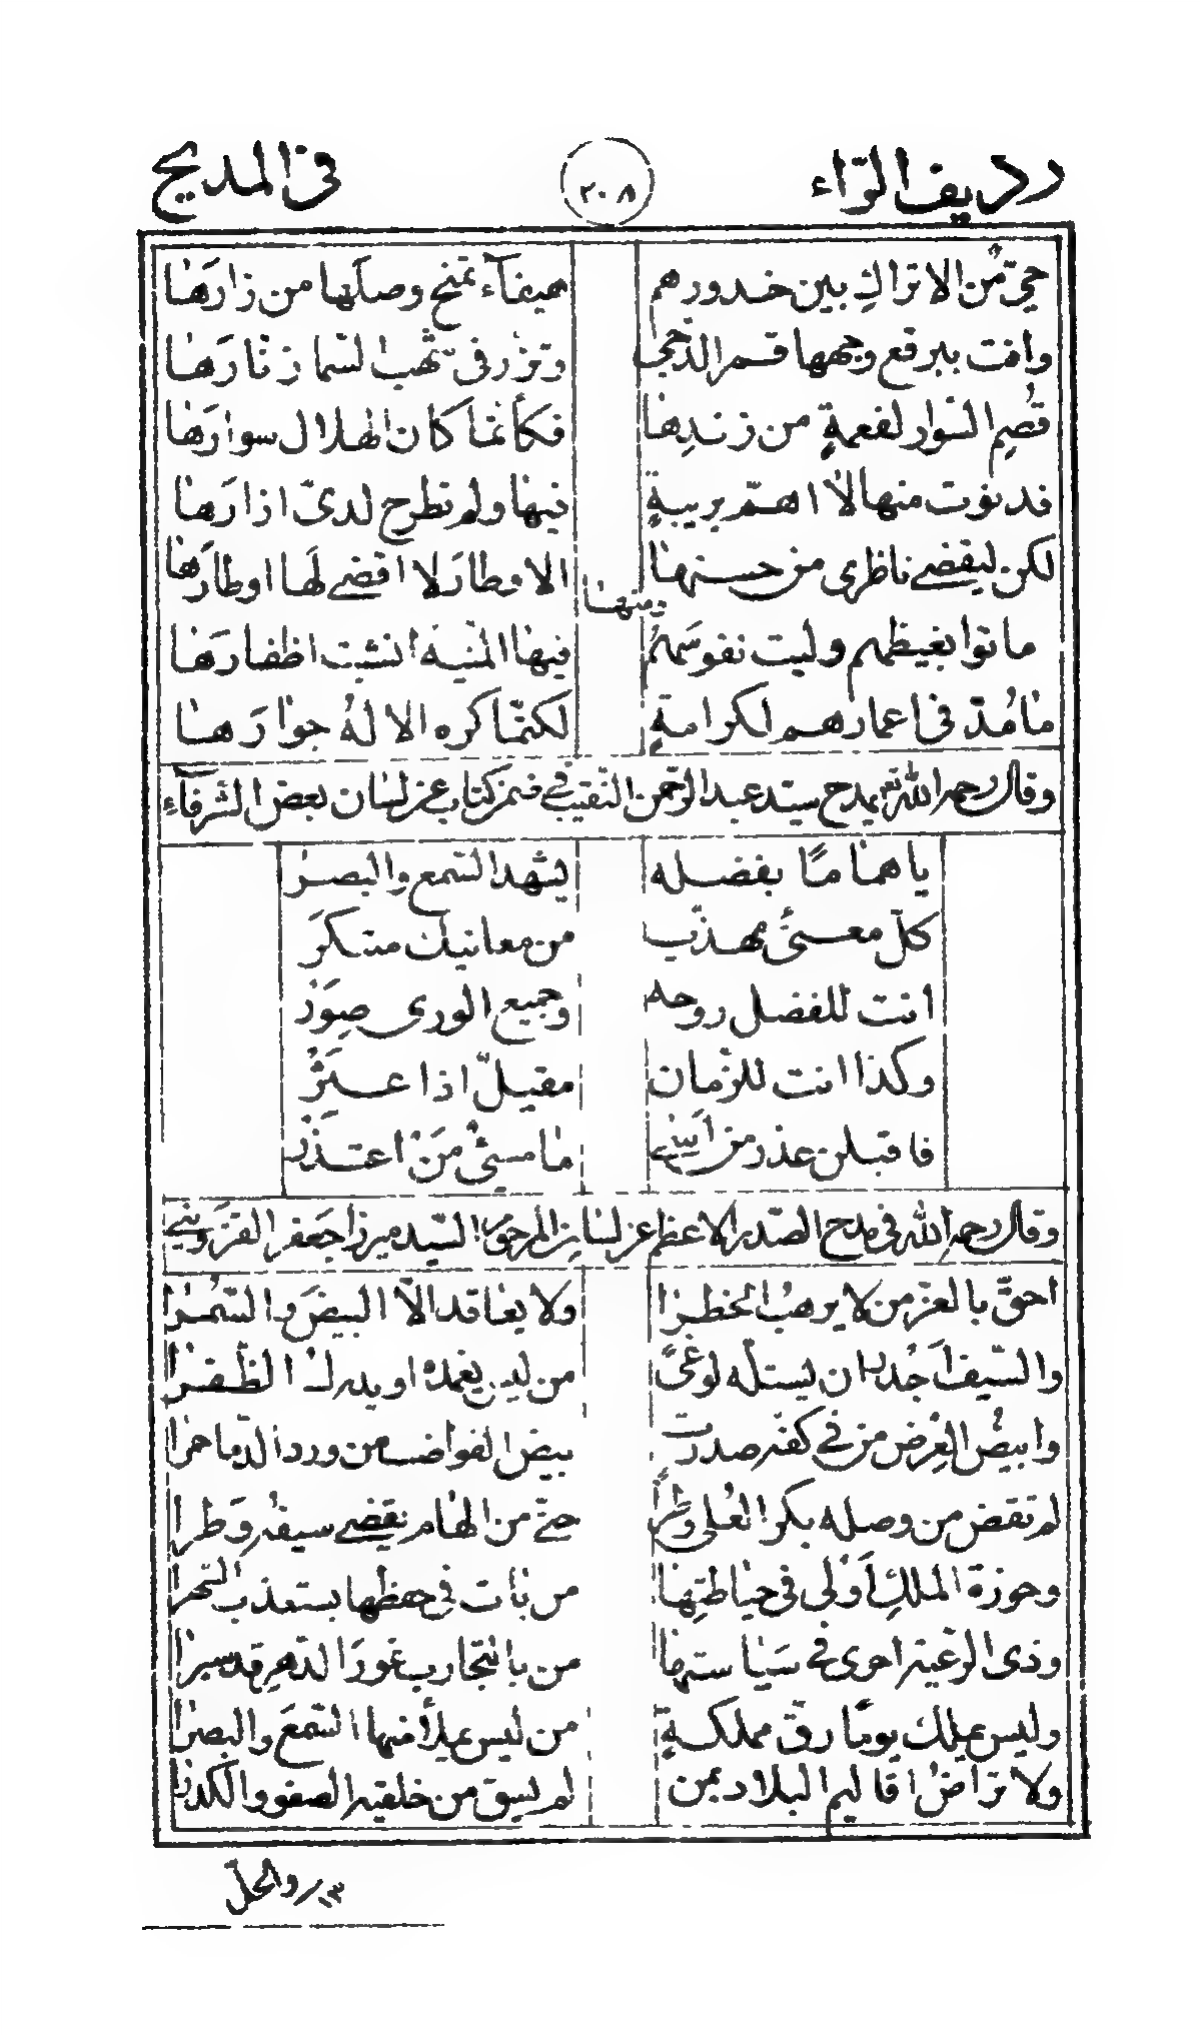 رديف الرّاء ٢٠٨ في المديح
حيّ من الاتراكِ بين خدورهم هيفآء تمنح وصلها من زارَها
وافت ببرقع وجهها قمر الدّجى وتزرّ في شهب السّما زنّارَها
فُصِمِ السّوار لفعمةٍ من زندِها فكأنّما كان الهلال سوارَها
قد بؤت منها لا اهمّ بريبةٍ فيها ولم تطرح لديّ ازارَها
لكن ليقضي ناظري من حسنها الاوطارَ لا اقضي لَها اوطارَها
ومنها
ماتوا بغيظهم وليت نفوسَهُم فيها المنيّة انشبت اظفارَها
ما مُدّ في اعمارهم لكرامةٍ لكنّما كره الالهُ جوارَها
وقال رحمه الله تع يمدح سيّد عبد الرّحمن النّقيب في ضمن كتاب عن لسان بعض الشّرفآء
يا هماما بفضله يشهد السّمع والبصرْ
كلّ معنىً مهذّب من معانيك مبتكرْ
انت للفضل روحه وجميع الورى صوَرْ
وكذا انت للزّمان مقيلٌ اذا عثَرْ
فاقبلن عذر من اَسى ما مسيئٌ مَنْ اعتذَرْ
وقال رحمه الله في مدح الصّدر الاعظم عن لسان المرحوم السّيد ميرزا جعفر القزويني
احقّ بالعزّ من لا يرهبُ الخطرا ولا يعاقد الاّ البيضَ والسّمُرا
والسّيف اَجدر ان يستلّه لوغىً من ليس يغمده او يدرك الظّفرا
وابيضُ العِرض من في كفّه صدرت بيض القواضب من ورد الدّما حمرا
لم تقض من وصله بكر العُلى وطراً حتّى من الهام يقضي سيفُه وَطرا
وحوزة الملكِ اَولى في حياطتها من بات في حفظها يستعذب السّهرا
وذي الرّعيّة احرى في سَياستها من بالتّجارب غورَ الدّهرِ قد سبرا
وليس يملك يومًا رقّ مملكةٍ من ليس يملأ منها السّمعَ والبصرا
ولا تراضُ اقاليم البلاد بمن لم يسق من خلقيه الصفو والكدرا
والحلّ